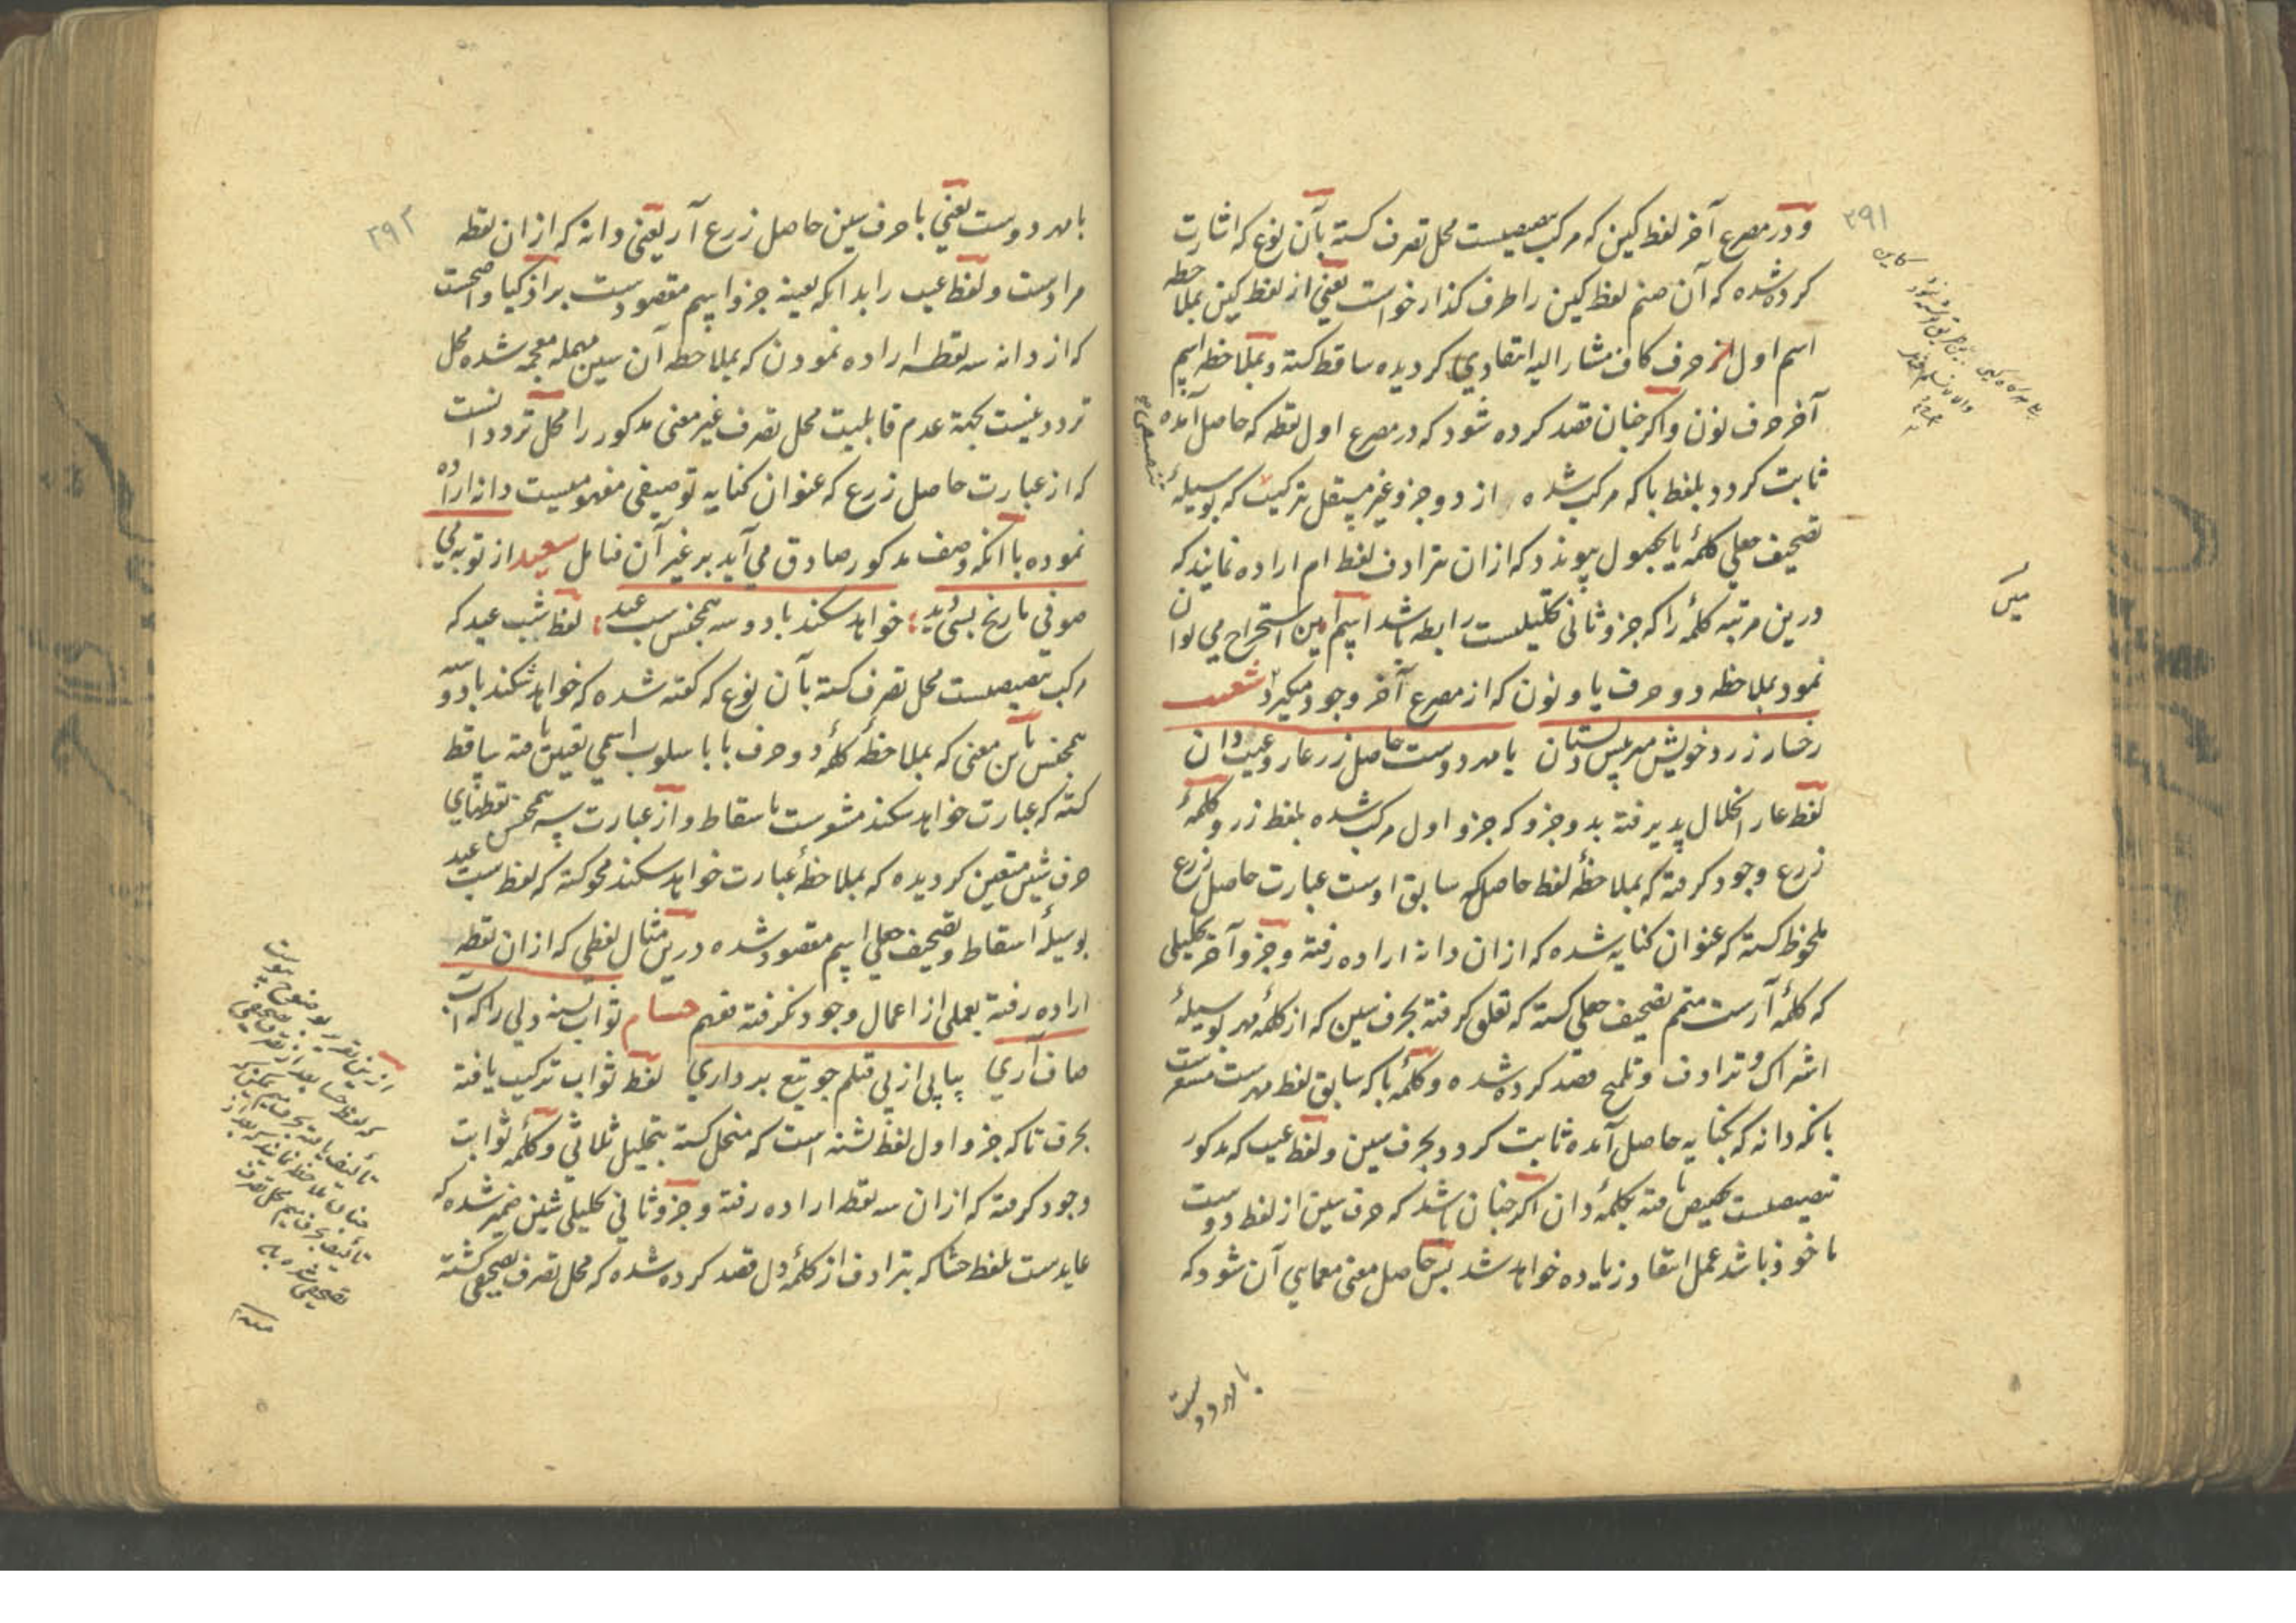 ۲۹۱
و در مصرع آخر لفظ کین که مرکب تبعیضیست محل تصرف کسته بآن نوع که اشارت
کرده شده که آن صنم لفظ کین را طرف کذار خواست یعنی از لفظ کین بملاحظه
اسم اول از حرف کاف مشار الیه انتقادی کردیده ساقط کسته و بملاحظه اسم
آخر حرف نون و اکر چنان قصد کرده شود که در مصرع اول نقطه که حاصل آمده
ثابت کردد بلفظ با که مرکب شده از دو جزو غیر مستقل بترکیب که بوسیلهٔ
تصحیف جعلی کلمهٔ یا بحصول پیوندد که ازان بترادف لفظ ام اراده نمایند که
درین مرتبه کلمهٔ را که جزو ثانی تحلیلیست رابطه باشد اسم امین استخراج می توان
نمود بملاحظه دو حرف یا و نون که از مصرع آخر وجود میکیرد شعیب
رخسار زرد خویش میرس بستان با مهر دوست حاصل زرع آر و عیب دان
لفظ عار انحلال پذیرفته بدو جزو که جزو اول مرکب شده بلفظ زر و کلمهٔ
زرع وجود کرفته که بملاحظهٔ لفظ حاصل که سابق اوست عبارت حاصل زرع
ملحوظ کسته که عنوان کنایه شده که ازان دانه اراده رفته و جزو آخر تحلیلی
که کلمهٔ آرست متمم تصحیف جعلی کسته که تعلق کرفته بحرف سین که از کلمهٔ مهر بوسیلهٔ
اشتراک و ترادف و تلمیح قصد کرده شده و کلمهٔ با که سابق لفظ مهرست مشعرست
بانکه دانه که بکنایه حاصل آمده ثابت کردد بحرف سین و لفظ عیب که مذکور
تبعیضیست تخصیص یافته بکلمهٔ دان اکر چنان باشد که حرف سین از لفظ دوست
ماخوذ باشد عمل انتقاد زیاده خواهد شد پس حاصل معنی معمایی آن شود که
با مهر دوست
۲۹۲
با مهر دوست یعنی با حرف سین حاصل زرع آر یعنی دانه که ازان نقطه
مرادست و لفظ عیب را بدانکه بعینه جزو اسم مقصودست بر اذکیا واضحست
که از دانه سه نقطه اراده نمودن که بملاحظه آن سین مهمله معجمه شده محل
تردد نیست بجهة عدم قابلیت محل تصرف غیر معنی مذکور را محل تردد انست
که از عبارت حاصل زرع که عنوان کنایه توصیفی مفهومیست دانه اراده
نموده با انکه وصف مذکور صادق می آید بر غیر آن فتامل سعید از توبه می
صوفی تاریخ بسی دید خواهد سکند با دو سه همجنس شب عید لفظ شب عید که
مرکب تبعیضیست محل تصرف کسته بآن نوع که کفته شده که خواهد شکند با دو سه
همجنس باین معنی که بملاحظهٔ کلمهٔ دو حرف با با سلوب اسمی تعیین یافته ساقط
کسته که عبارت خواهد سکند مشعرست باسقاط و از عبارت سه همجنس نقطهای
حرف شین متعین کردیده که بملاحظهٔ عبارت خواهد سکند محو کسته که لفظ سب عید
بوسیلهٔ اسقاط و تصحیف جعلی اسم مقصود شده درین مثال لفظی که ازان نقطه
اراده رفته بعملی از اعمال وجود نکرفته تفهم حسام ثواب تشنه دلی را که آب
صاف آری پیاپی از پی قتلم جو تیغ برداری لفظ ثواب ترکیب یافته
بحرف تا که جزو اول لفظ تشنه است که منحل کسته بتحلیل ثلاثی و کلمهٔ ثوابت
وجود کرفته که ازان سه نقطه اراده رفته و جزو ثانی تحلیلی شین ضمیر شده که
عایدست بلفظ حشا که بترادف از کلمهٔ دل قصد کرده شده که محل تصرف تصحیفی کشته